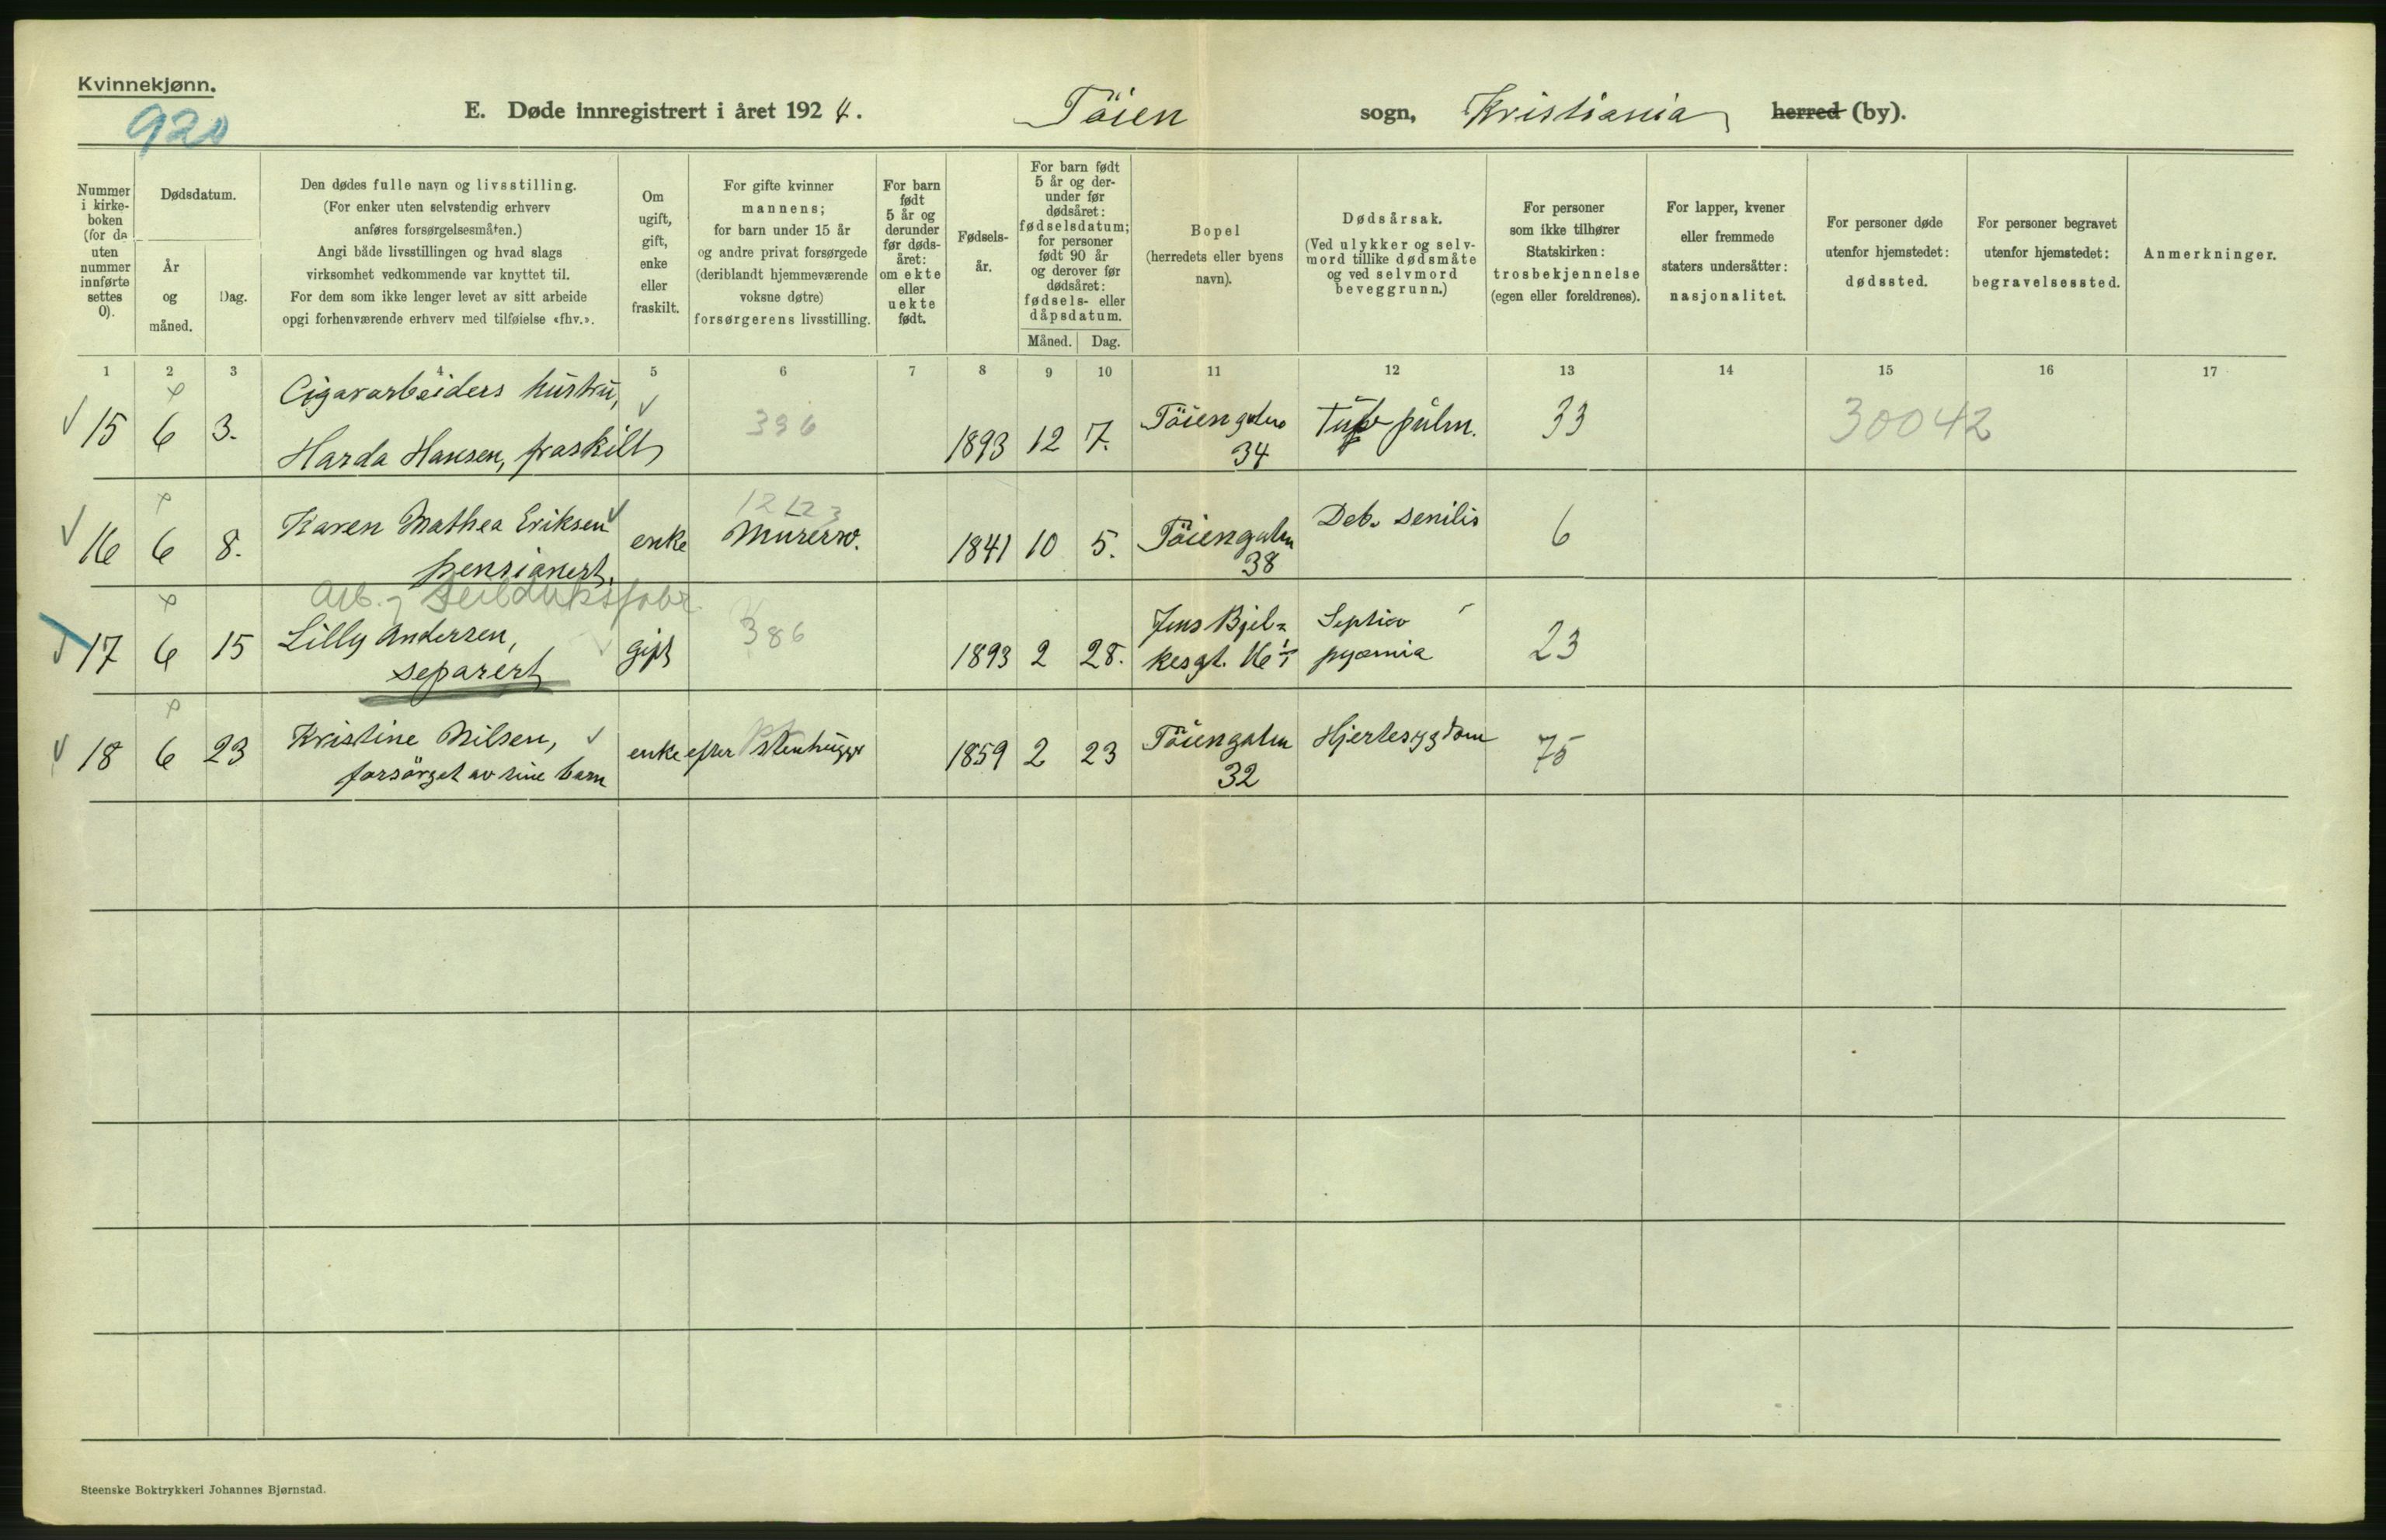 Kvinnekjønn.
920
E. Døde innregistrert i året 1924. Töien sogn, Kristiania herred (by).
Nummer i kirke- boken (for de uten nummer innførte settes 0).
Dødsdatum.
År og måned.
Dag.
Den dødes fulle navn og livsstilling.
(For enker uten selvstendig erhverv
anføres forsørgelsesmåten.)
Angi både livsstillingen og hvad slags
virksomhet vedkommende var knyttet til.
For dem som ikke lenger levet av sitt arbeide
opgi forhenværende erhverv med tilføielse «fhv.».
Om ugift, gift, enke eller fraskilt.
For gifte kvinner
mannens;
for barn under 15 år
og andre privat forsørgede
(deriblandt hjemmeværende
voksne døtre)
forsørgerens livsstilling.
For barn født 5 år og derunder før døds- året: om ekte eller uekte født.
Fødsels- år.
For barn født
5 år og der-
under før
dødsåret:
fødselsdatum;
for personer
født 90 år
og derover før
dødsåret:
fødsels- eller
dåpsdatum.
Måned. Dag.
Bopel
(herredets eller byens
navn).
Dødsårsak.
(Ved ulykker og selv-
mord tillike dødsmåte
og ved selvmord
beveggrunn.)
For personer
som ikke tilhører
Statskirken:
trosbekjennelse
(egen eller foreldrenes).
For lapper, kvener
eller fremmede
staters undersåtter:
nasjonalitet.
For personer døde
utenfor hjemstedet:
dødssted.
For personer begravet
utenfor hjemstedet:
begravelsessted.
Anmerkninger.
1 2 3 4 5 6 7 8 9 10 11 12 13 14 15 16 17
Cigararbeiders hustru,
15 6 3. Harda Hansen, fraskilt 396 1893 12 7. Töiengaten 34 Tub. pulm. 33 30042
1223
16 6 8. Karen Mathea Eriksen enke Murersv. 1841 10 5. Töiengaten 38 Deb. senilis 6
pensionert.
Arb. Seilduksfabr.
17 6 15 Lilly Andersen, gift 386 1893 2 28. Jens Bjel=
separert kesgt. 16 Septico pyæmia 23
18 6 23 Kristine Nilsen, enke efter stenhugger 1859 2 23 Töiengaten 32 Hjertesygdom 75
forsörget av sine barn
Steenske Boktrykkeri Johannes Bjørnstad.